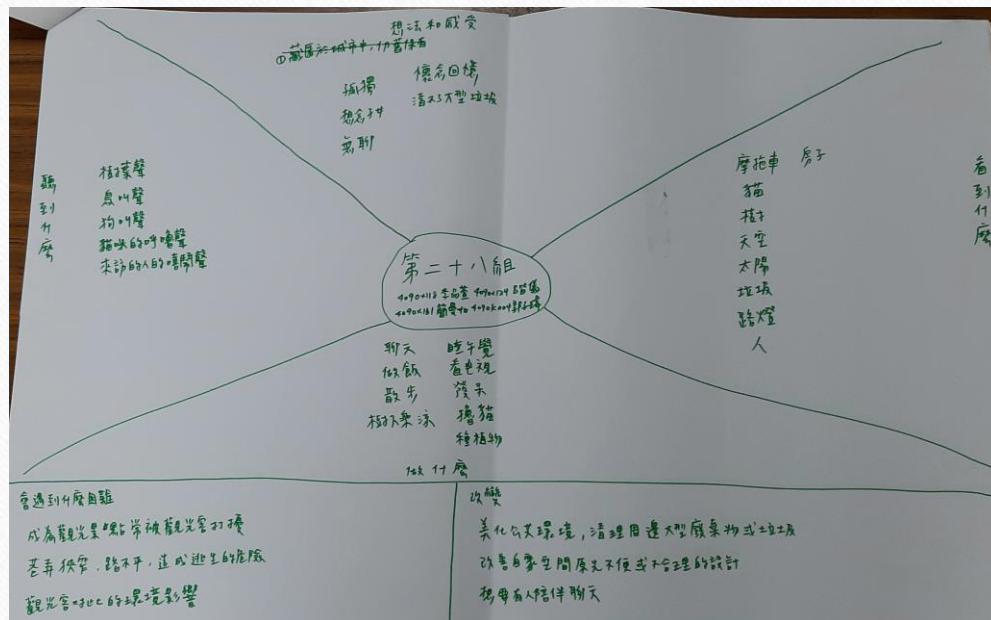 想法和感受
孤獨
想念子女
無聊
懷念回憶
清不了大型垃圾
聽到什麼
樹葉聲
鳥叫聲
狗叫聲
貓咪的呼嚕聲
來訪的人的嘻鬧聲
看到什麼
摩拖車
貓
樹子
天空
太陽
垃圾
路燈
人
房子
第二十八組
聊天
做飯
散步
樹下乘涼
睡午覺
看電視
發呆
擼貓
種植物
做什麼
會遇到什麼困難
成為觀光景點常被觀光客打擾
巷弄狹窄,路不平,造成逃生的危險
觀光客對此的環境影響
改變
美化公共環境,清理周邊大型廢棄物或垃圾
改善自家空間原先不便或不合理的設計
想要有人陪伴聊天